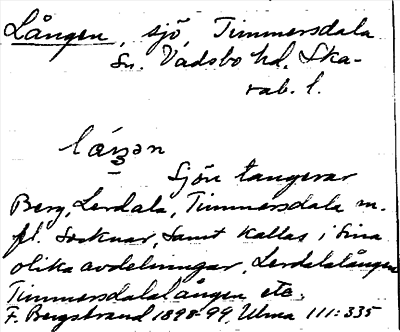 Lången, sjö, Timmersdala
Sn. Vadsbo hd. Ska-
rab. l.
Sjön tangerar
Berg, Lerdala, Timmersdala m.
fl. socknar, samt kallas i sina
olika avdelningar, Lerdalalången
Timmersdalalången etc.
F. Bergstrand 1898-99, Ulma 111:335